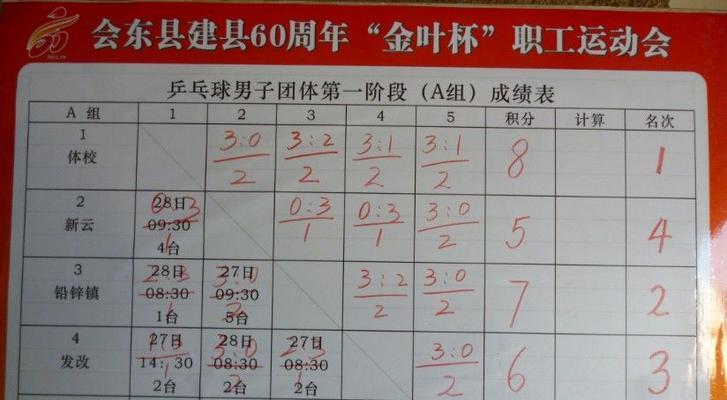 会东县建县60周年“金叶杯”职工运动会
乒乓球男子团体第一阶段（A组）成绩表
A 组 1 2 3 4 5 积分 计算 名次
1
体校
3:0 3:2 3:1 3:1
2 2 2 2
8 1
2
新云
28日
0:3
09:30
1
4台
0:3 0:3 3:0
1 1 2
5 4
3
铅锌镇
28日 27日
2:3 3:0
08:30 09:30
1 2
1台 5台
3:2 3:0
2 2
7 2
4
发改
27日 28日 27日
1:3 3:0 2:3
14:30 08:30 08:30
1 2 1
2台 2台 2台
3:0
2
6 3